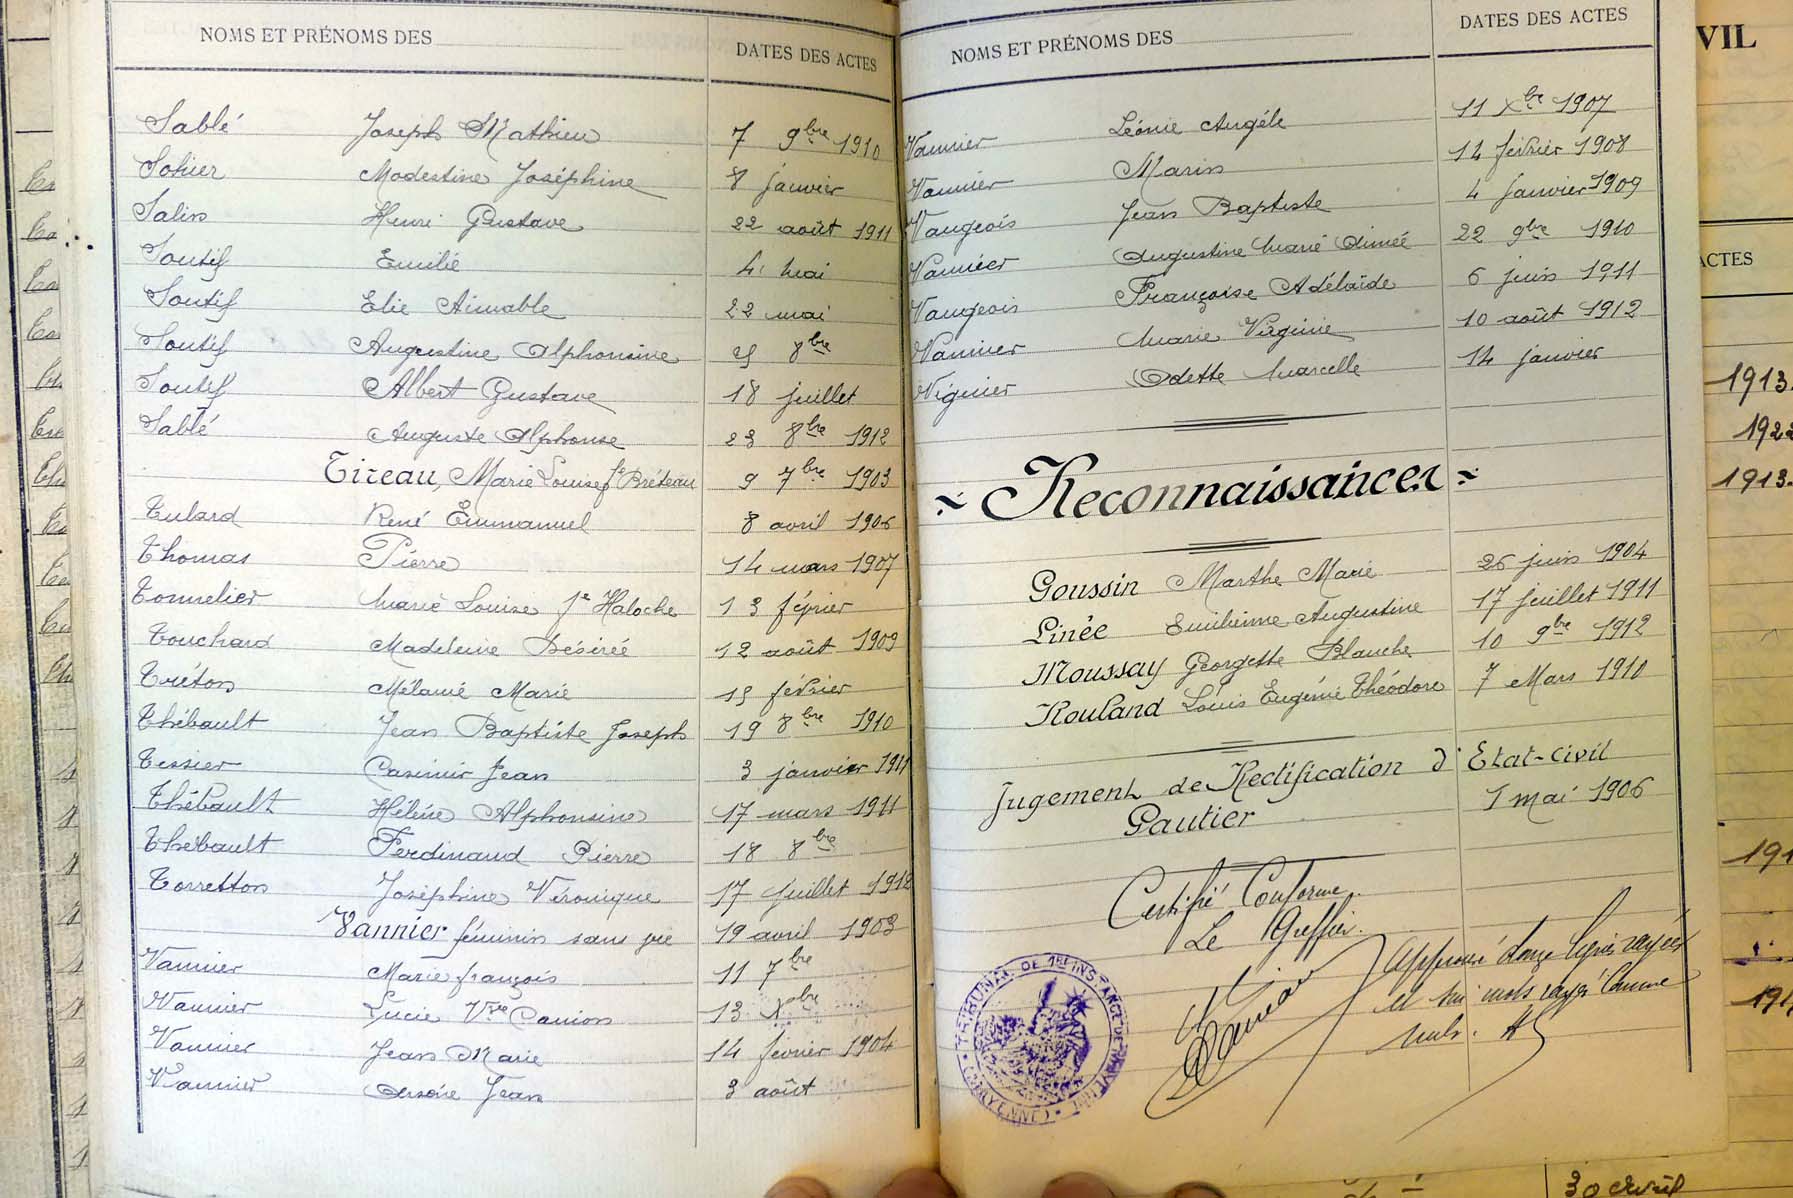 NOMS ET PRÉNOMS DES DATES DES ACTES
Sablé Joseph Mathieu 7 9bre 1910
Sohier Modestine Joséphine 8 janvier
Salin Henri Gustave 22 août 1911
Soutif Emilie 4 mai
Soutif Elie Aimable 22 mai
Soutif Augustine Alphonsine 8bre
Soutif Albert Gustave 18 juillet
Sablé Auguste Alphonse 23 8bre 1912
Tireau, Marie Louise fe Bréteau 9 7bre 1903
Tulard René Emmanuel 8 avril 1906
Thomas Pierre 14 mars 1907
Tonnelier Marie Louise fe Haloche 13 février
Touchard Madeleine Désirée 12 août 1909
Tréton Mélanie Marie 15 février
Thébault Jean Baptiste Joseph 19 8bre 1910
Tessier Casimir Jean 3 janvier 1911
Thébault Hélène Alphonsine 17 mars 1911
Thébault Ferdinand Pierre 18 8bre
Torretton Joséphine Véronique 17 juillet 1912
Vannier féminin sans vie 19 avril 1903
Vannier Marie françois 11 7bre
Vannier Lucie Vve Camion 13 Xbre
Vannier Jean Marie 14 février 1904
Vannier Arsène Jean 3 août
NOMS ET PRÉNOMS DES DATES DES ACTES
Vannier Léonie Angèle 11 Xbre 1907
Vannier Marin 14 février 1908
Vaugeois Jean Baptiste 4 janvier 1909
Vannier Augustine Marie Aimée 22 9bre 1910
Vaugeois Françoise Adélaïde 6 juin 1911
Vannier Marie Virginie 10 août 1912
Viguier Odette Marcelle 14 janvier
Reconnaissances
Goussin Marthe Marie 26 juin 1904
Linée Emilienne Augustine 17 juillet 1911
Moussay Georgette Blanche 10 9bre 1912
Rouland Louis Eugénie Théodore 7 Mars 1910
Jugement de Rectification d'Etat-civil
Gautier 1 mai 1906
Certifié Conforme
Le Greffier.
Approuvé lignes rayées
et mots rayés comme
nuls.
TRIBUNAL DE 1RE INSTANCE DE MAYENNE
(MAYENNE)
VIL
ACTES
1913.
1922
1913.
191
191
30 avril